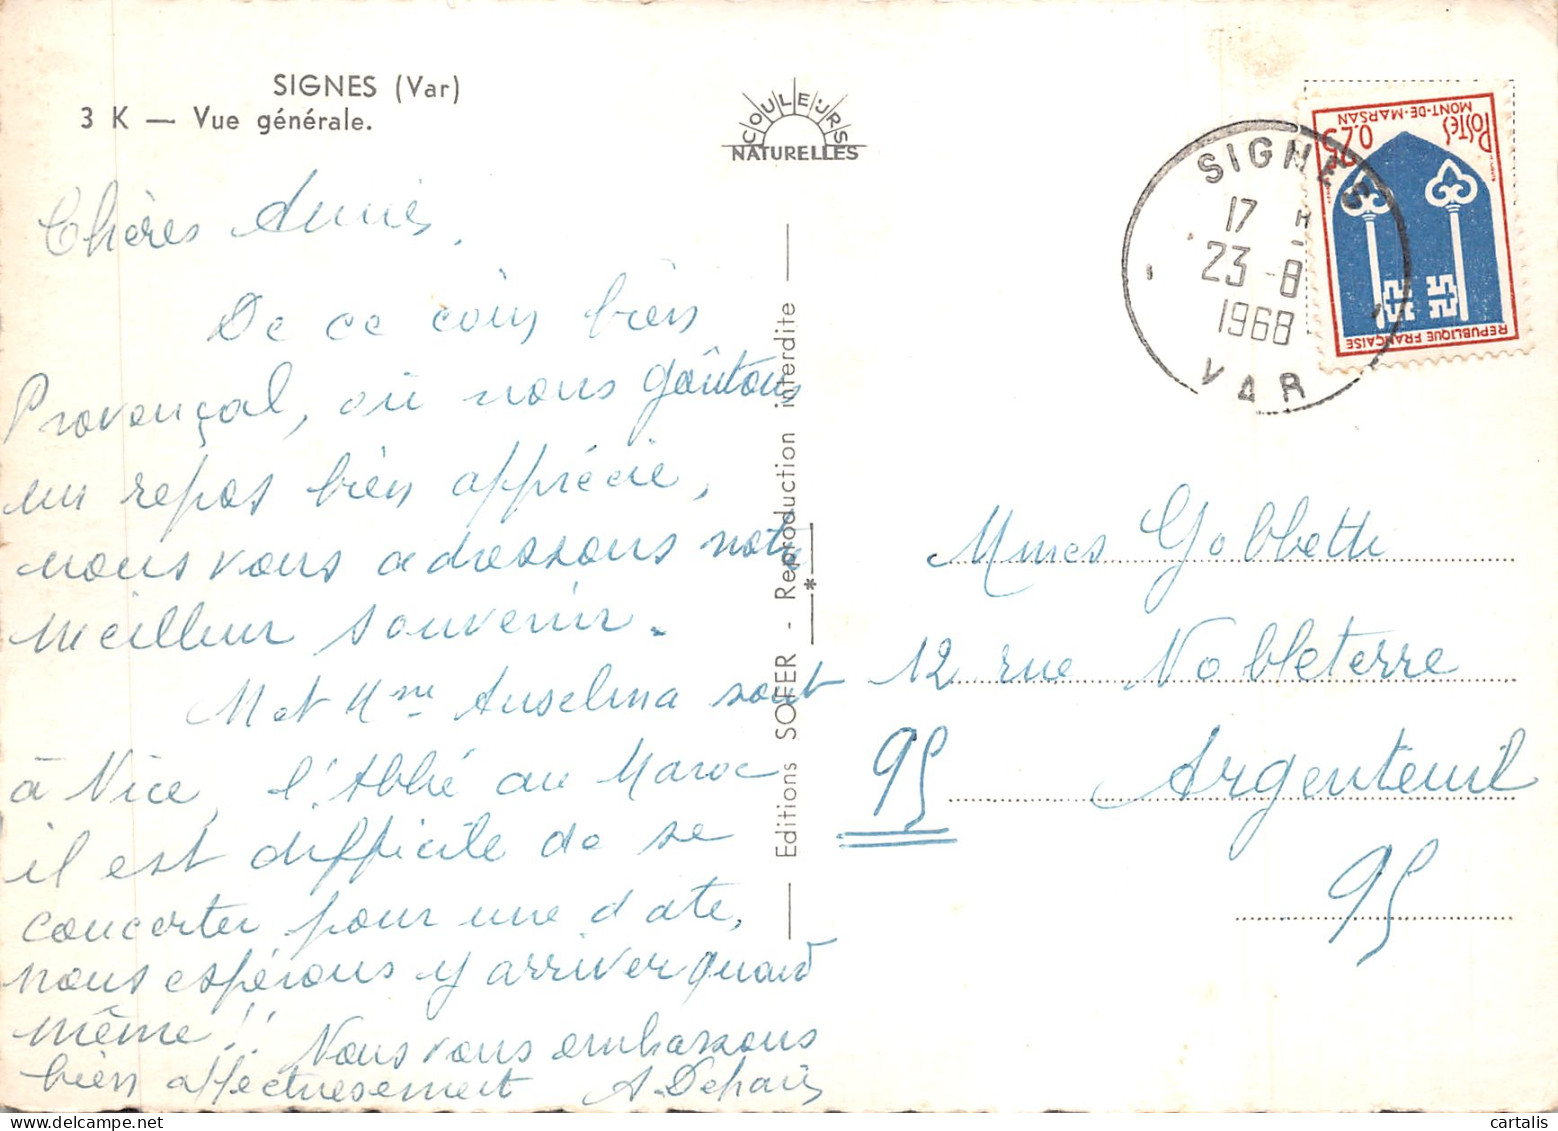 SIGNES (Var)
3 K — Vue générale.
COULEURS
NATURELLES
Chères Amies,
De ce coin bien
Provençal, où nous goûtons
un repos bien apprécié,
nous vous adressons notre
meilleur souvenir.
M et Mme Anselma sont
à Nice, l'Abbé au Maroc
il est difficile de se
concerter pour une date,
nous espérons y arriver quand
même !! Nous vous embrassons
bien affectueusement A.
Editions SOFER - Reproduction interdite
*
SIGNES
17 H
23-8
1968
VAR
POSTES
0,25
MONT-DE-MARSAN
REPUBLIQUE FRANÇAISE
Mmes Gobbetti
12 rue Nobleterre
95 Argenteuil
95
cartalis